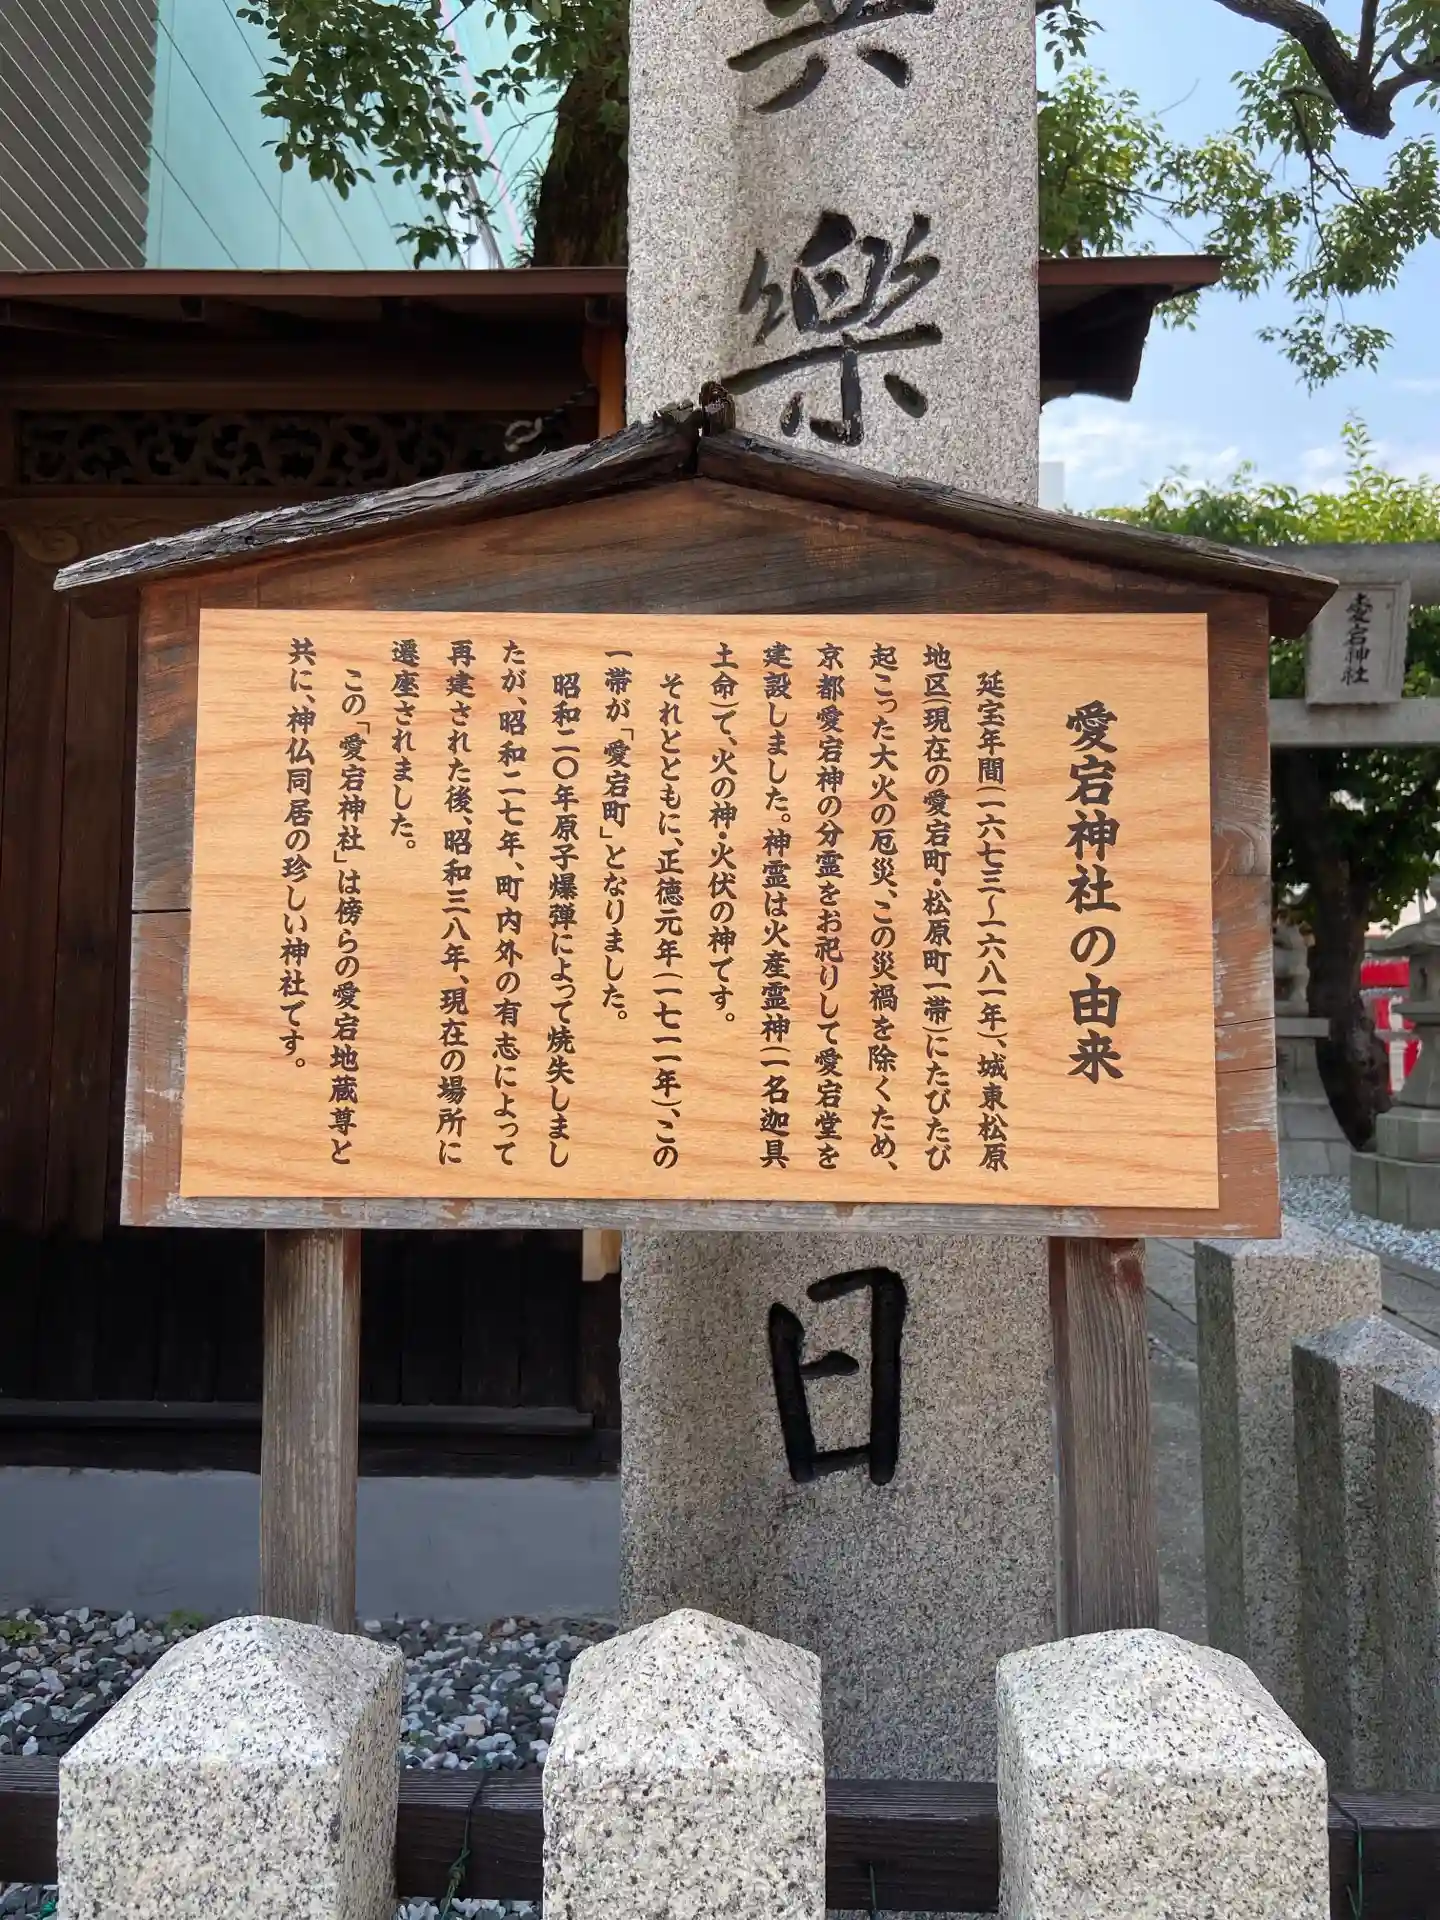 愛宕神社の由来
延宝年間(一六七三〜一六八一年)、城東松原
地区(現在の愛宕町・松原町一帯)にたびたび
起こった大火の厄災、この災禍を除くため、
京都愛宕神の分霊をお祀りして愛宕堂を
建設しました。神霊は火産霊神(一名迦具
土命)で、火の神・火伏の神です。
それとともに、正徳元年(一七一一年)、この
一帯が「愛宕町」となりました。
昭和二〇年原子爆弾によって焼失しまし
たが、昭和二七年、町内外の有志によって
再建された後、昭和三八年、現在の場所に
遷座されました。
この「愛宕神社」は傍らの愛宕地蔵尊と
共に、神仏同居の珍しい神社です。
樂
日
愛宕神社